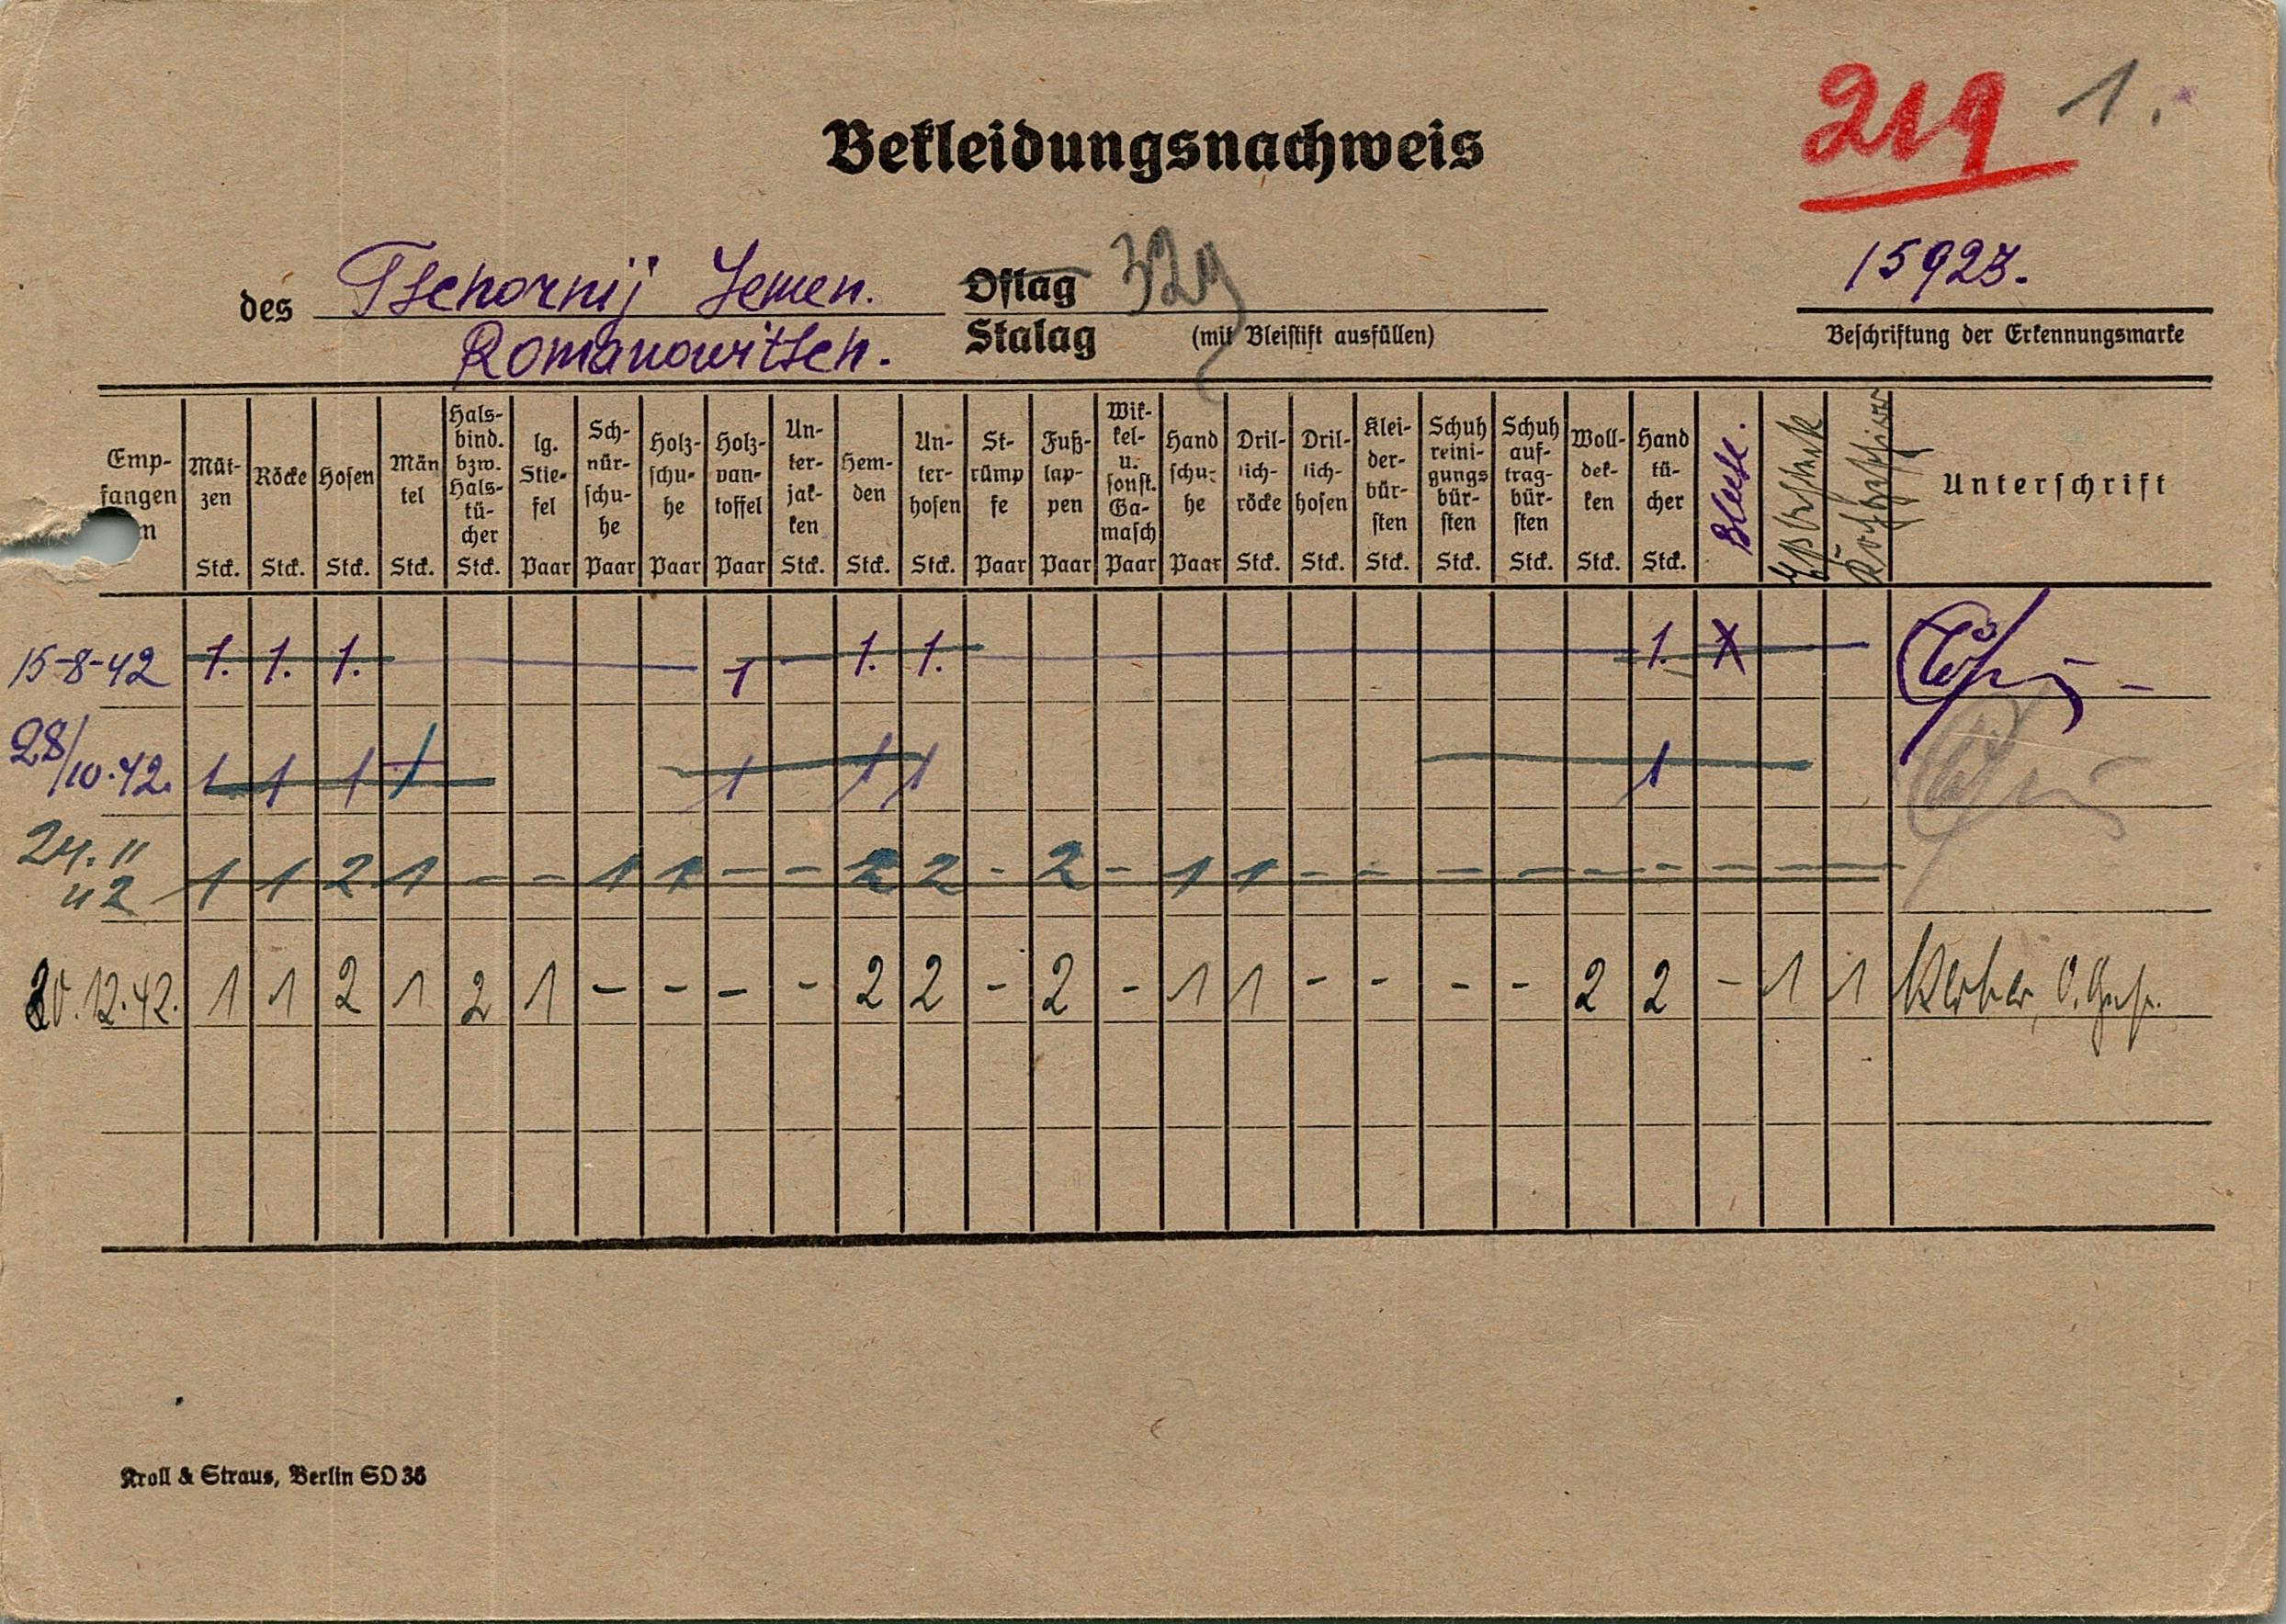 219 1.
Bekleidungsnachweis
des Tschornij Semen. Oflag 329 15923.
Romanowitsch. Stalag (mit Bleistift ausfüllen) Beschriftung der Erkennungsmarke
Emp-fangen Müt-zen Stck. Röcke Stck. Hosen Stck. Män tel Stck. Hals-bind. bzw. Hals-tü-cher Stck. lg. Stie-fel Paar Sch-nür-schu-he Paar Holz-schu-he Paar Holz-pan-toffel Paar Un-ter-jak-ken Stck. Hem-den Stck. Un-ter-hosen Stck. St-rümp fe Paar Fuß-lap-pen Paar Wik-kel-u. sonst. Ga-masch Paar Hand schu-he Paar Dril-lich-röcke Stck. Dril-lich-hosen Stck. Klei-der-bür-sten Stck. Schuh reini-gungs bür-sten Stck. Schuh auf-trag-bür-sten Stck. Woll-dek-ken Stck. Hand tü-cher Stck. Bluse. Unterschrift
15-8-42 1. 1. 1. 1 1. 1. 1. X
28/10.42. 1 1 1 1 1 1 1 1
24.11 42 1 1 2 1 - - 1 1 - - 2 2 - 2 - 1 1 - - - - - - - - -
20.12.42. 1 1 2 1 2 1 - - - - 2 2 - 2 - 1 1 - - - - 2 2 - 1 1
Kroll & Straus, Berlin SO 36